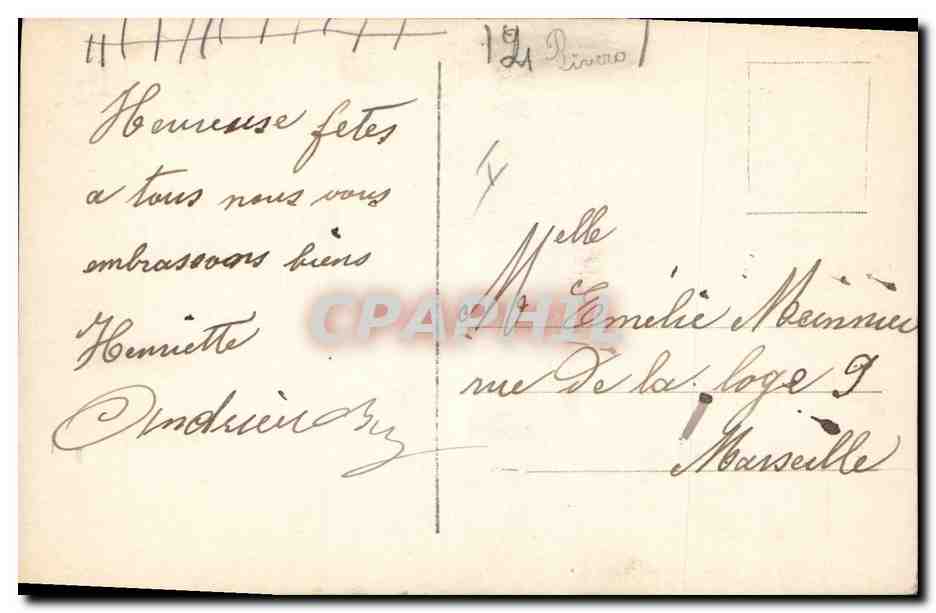 Rivero
Heureuse fetes
a tous nous vous
embrassons biens
Henriette
Andrieu
Melle
Emélie Meinnier
rue De la loge 9
Marseille
CPAPHIL